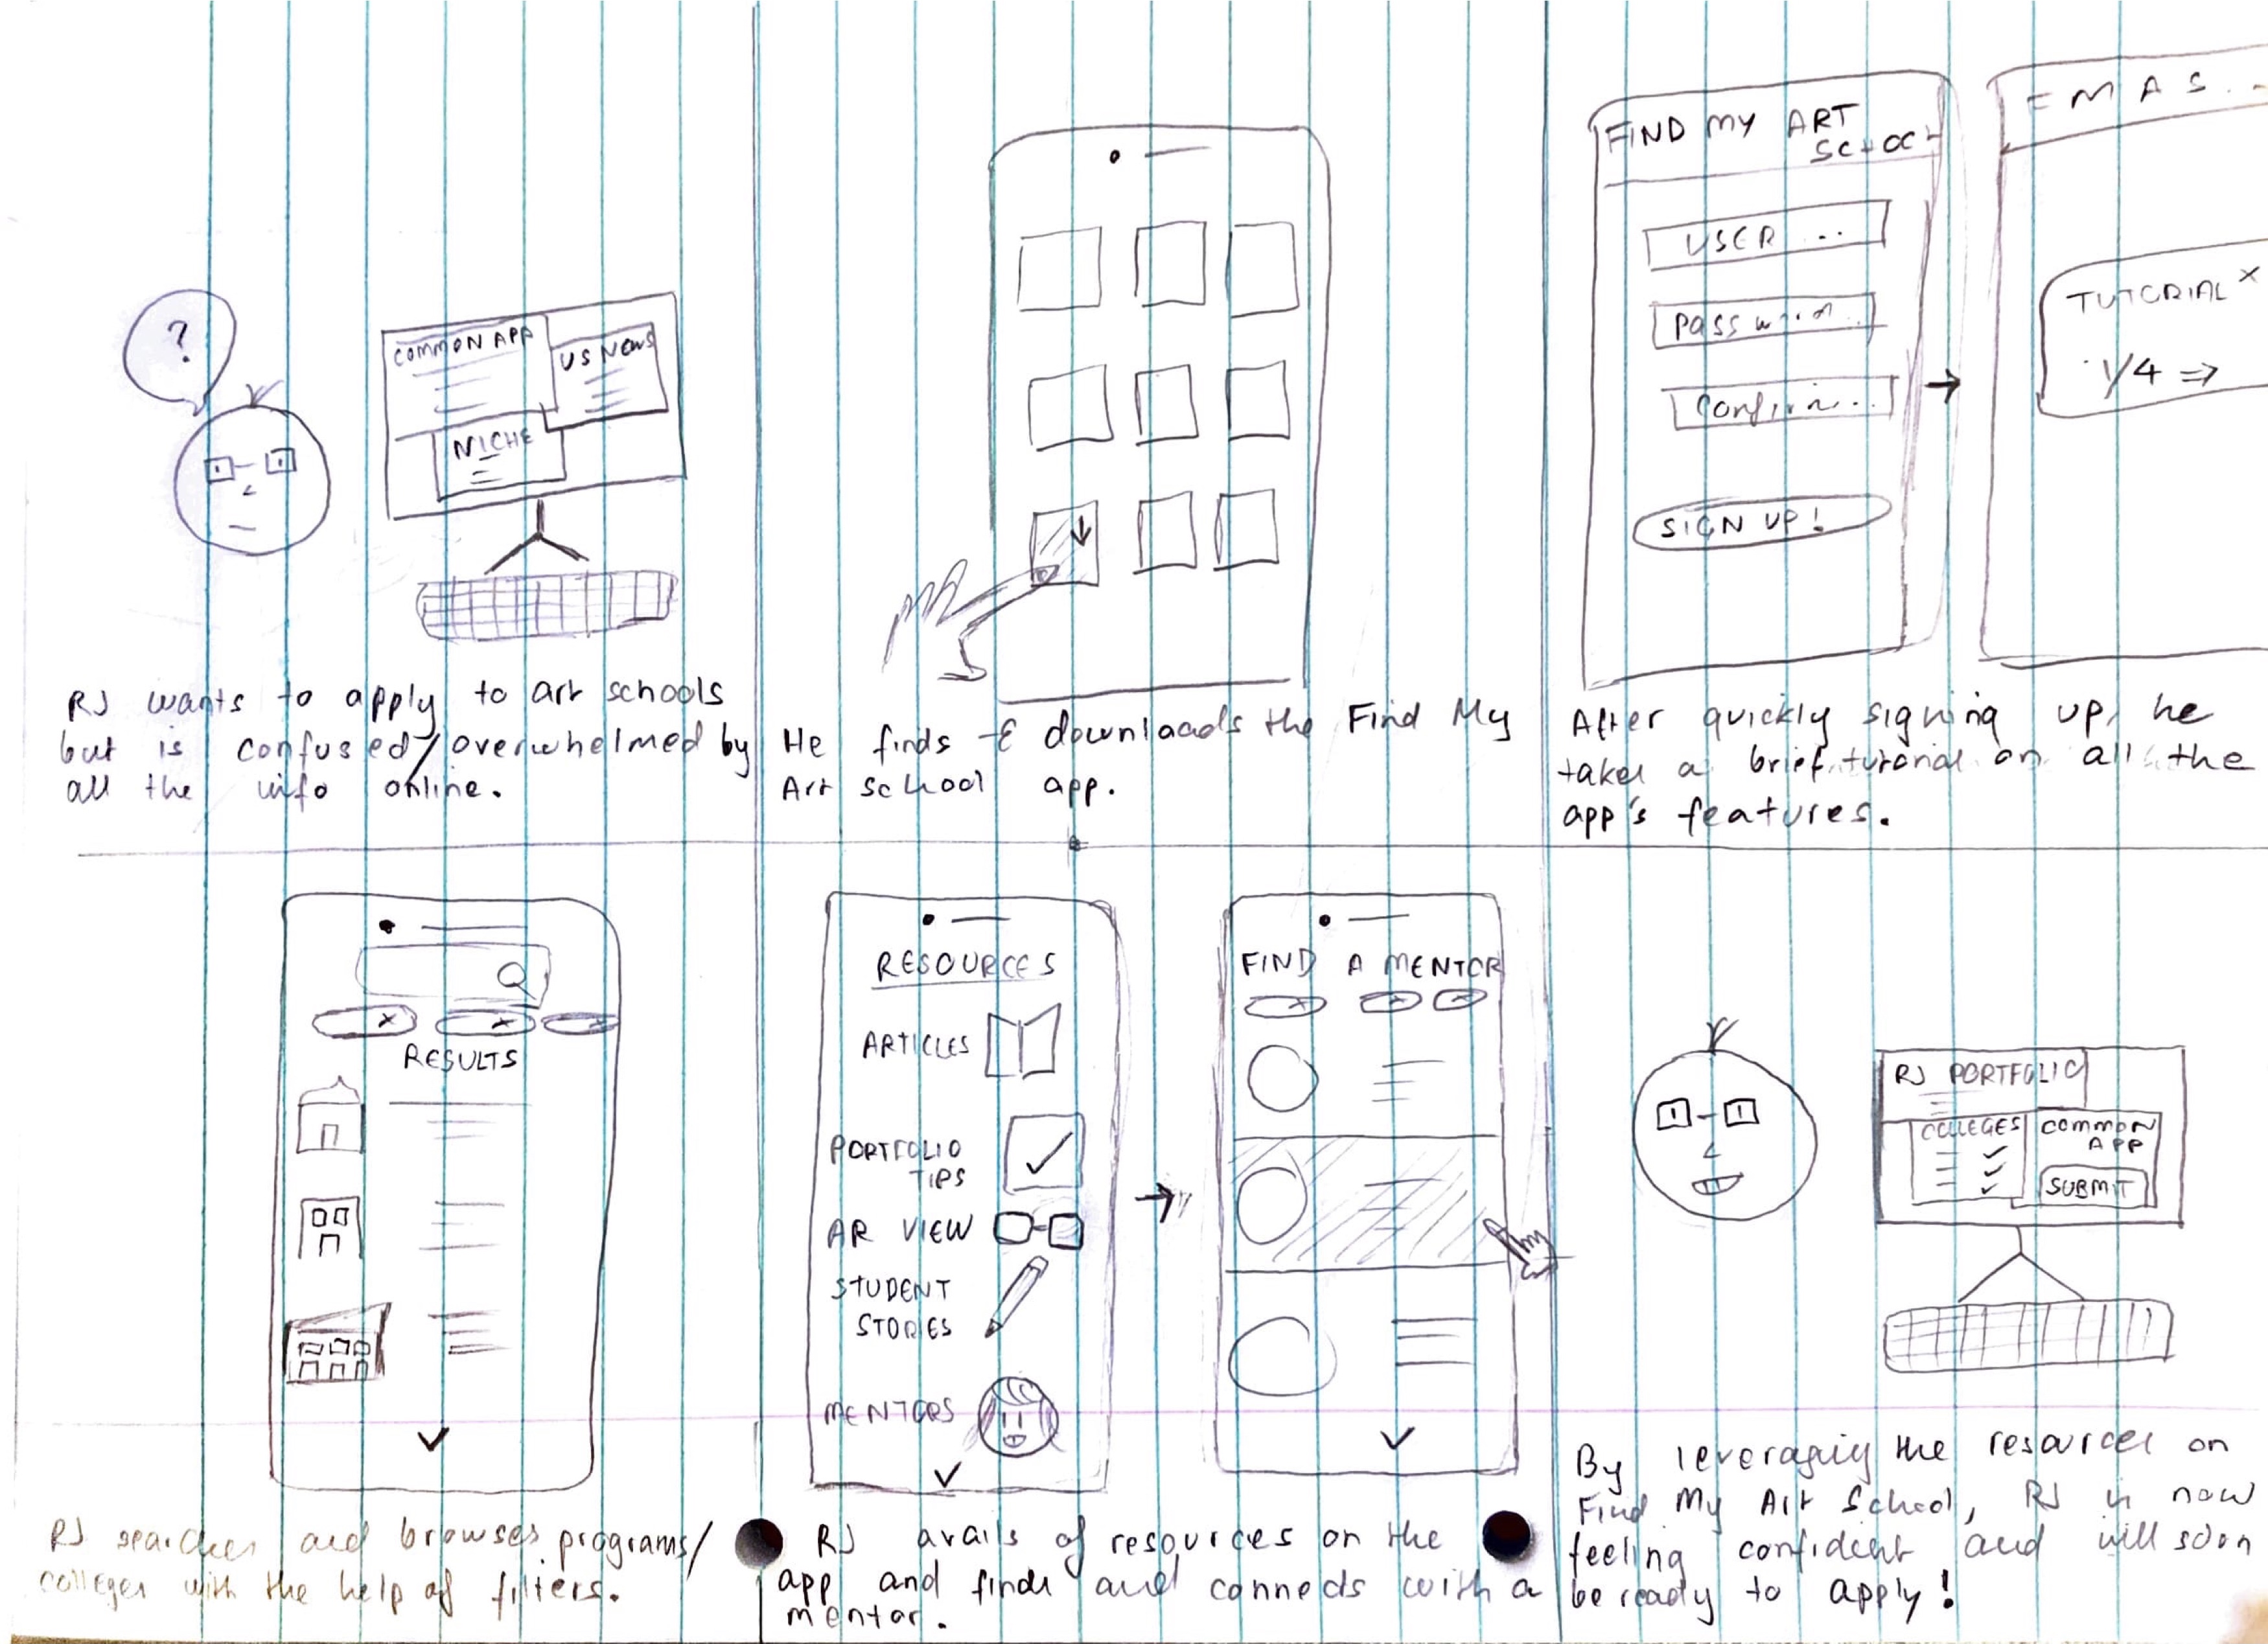 ?
COMMON APP
US NEWS
NICHE
RJ wants to apply to art schools
but is confused/overwhelmed by
all the info online.
He finds & downloads the Find My
Art School app.
FIND MY ART
SCHOOL
USER ...
Password...
Confirm...
SIGN UP!
FMAS...
TUTORIAL X
1/4 ⇒
After quickly signing up, he
takes a brief tutorial on all the
app's features.
RESULTS
RJ searches and browses programs/
colleges with the help of filters.
RESOURCES
ARTICLES
PORTFOLIO
TIPS
AR VIEW
STUDENT
STORIES
MENTORS
FIND A MENTOR
RJ avails of resources on the
app and finds and connects with a
mentor.
RJ PORTFOLIO
COLLEGES
COMMON
APP
SUBMIT
By leveraging the resources on
Find My Art School, RJ is now
feeling confident and will soon
be ready to apply!